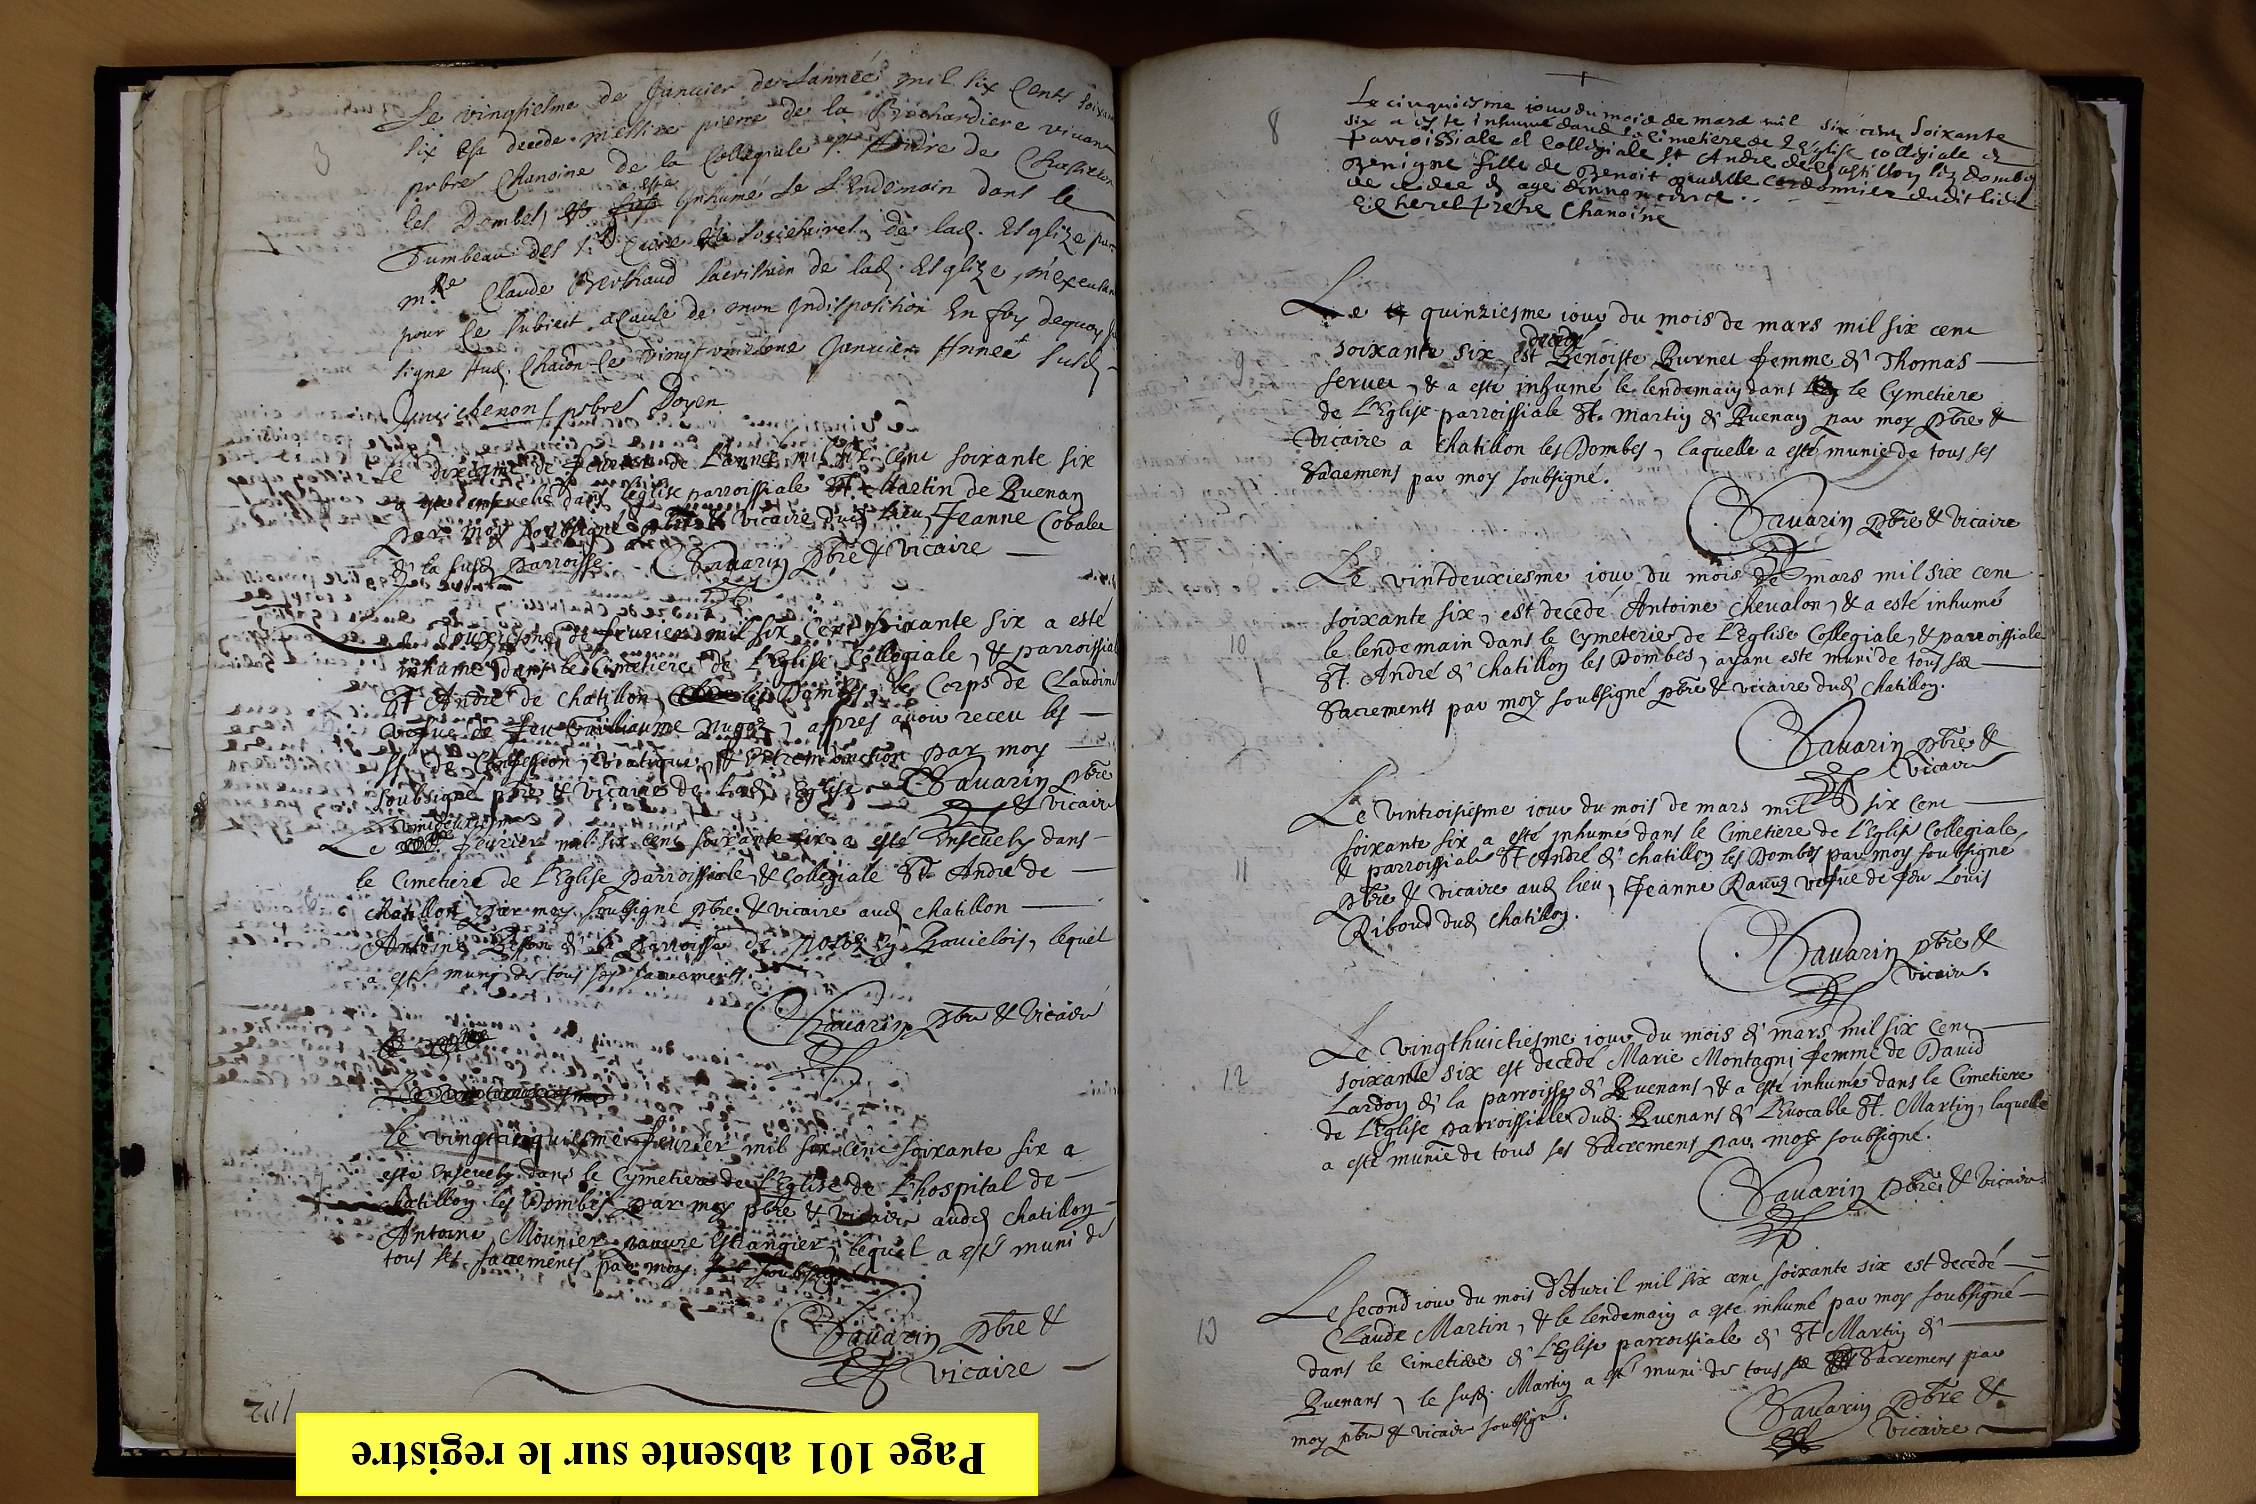 Le vingtiesme de Janvier de Lannée mil six Cents soixan
six est decedé messire pierre de la Brochardiere vivan
3
pnbre Chanoine de la Collegiale St Andre de Chastillon
les Dombes, a esté Inhumé le L'Endemain dans le
Tumbeau des Srs Curé Societaires de lad. Esglize par
mre Claude Berthaud sacristain de lad. Esglize, m'excusan
pour ce subiect acause de mon Indisposition En foy dequoy
signé Aud. Chaōn Le vingt uniesme Janvier Année susd.
Guichenon pnbre Doyen
Le dixiesme de feurier de L'année mil six cent soixante six
a esté enseveli dans l'eglise parroissiale St. Martin de Buenan
par moy soubsigné pbre & vicaire dud. lieu, Jeanne Cobalet
de la susd. parroisse. Savarin pbre & vicaire
Le douxiesme de feurier mil six cent soixante six a esté
inhumé dans le Cimetiere de L'Eglise Collegiale, & parroissial
St André de Chatillon les Dombes, le Corps de Claudine
vefve de feu Guilliaume Nugoz, apres auoir receu les
Sts de Confession, viatique, & Extremonction par moy
soubsigné pbre & vicaire de lad. Eglise Savarin pbre
& vicaire
vintdeuxiesme
Le feurier mil six cent soixante six a esté Enseuely dans
le Cimetiere de L'Eglise parroissiale, & Collegiale St. André de
chatillon par moy soubsigné pbre & vicaire aud. chatillon
Antoine Beson de la parroisse de , lequel
a esté muni de tous ses sacrements.
Savarin pbre & vicaire
Le vingtcinquiesme feurier mil six cent soixante six a
esté enseuely dans le Cymetiere de l'Eglise de L'hospital de
chatillon les Dombes par moy pbre & vicaire aud. chatillon
Antoine Mounier pauvre estrangier, lequel a esté muni de
tous ses sacrements par moy
Savarin pbre &
vicaire
Page 101 absente sur le registre
8
Le cinquiesme iour du mois de mars mil six cens soixante
six a este inhumé dans le Cimetiere de L'Eglise collegiale &
parroissiale et Collegiale St André de chastillon les Dombes
Benigne fille de Benoit cordonnier dudit lieu
de
Cicherel prestre Chanoine
Le quinziesme iour du mois de mars mil six cent
decedé
soixante six, est Benoiste Burnet femme de Thomas
seruet, & a esté inhumé le lendemain dans le Cymetiere
de L'Eglise parroissiale St. Martin de Buenan par moy pbre &
vicaire a chatillon les Dombes, laquelle a esté munie de tous ses
Sacremens par moy soubsigné.
Savarin pbre & vicaire
10
Le vintdeuxiesme iour du mois de mars mil six cent
soixante six, est decedé Antoine chevalon, & a esté inhumé
le lendemain dans le Cymeterie de L'Eglise Collegiale, & parroissiale
St. André de chatillon les Dombes, ayant esté muni de tous ses
Sacrements par moy soubsigné pbre & vicaire dud. chatillon.
Savarin pbre &
vicaire
11
Le vintroisiesme iour du mois de mars mil six cent
soixante six a esté inhumé dans le Cimetiere de L'Eglise Collegiale,
& parroissiale St André de chatillon les Dombes par moy soubsigné
pbre & vicaire aud. lieu, Jeanne Ravuz vefue de feu Louis
Riboud dud. chatillon.
Savarin pbre &
vicaire.
12
Le vingthuictiesme iour du mois de mars mil six cent
soixante six est decedé Marie Montagni femme de David
Lardon de la parroisse de Buenans, & a esté inhumé dans le Cimetiere
de L'Eglise parroissiale dud. Buenans de L'Inuocable St. Martin, laquelle
a esté munie de tous ses Sacremens par moy soubsigné.
Savarin pbre. & vicaire.
13
Le second iour du mois d'Auril mil six cent soixante six est decedé
Claude Martin, & le lendemain a esté inhumé par moy soubsigné
dans le Cimetiere de L'Eglise parroissiale de St Martin de
Buenans, le susd. Martin a esté muni de tous ses Sacremens par
moy pbre & vicaire soubsigné.
Savarin pbre &
vicaire